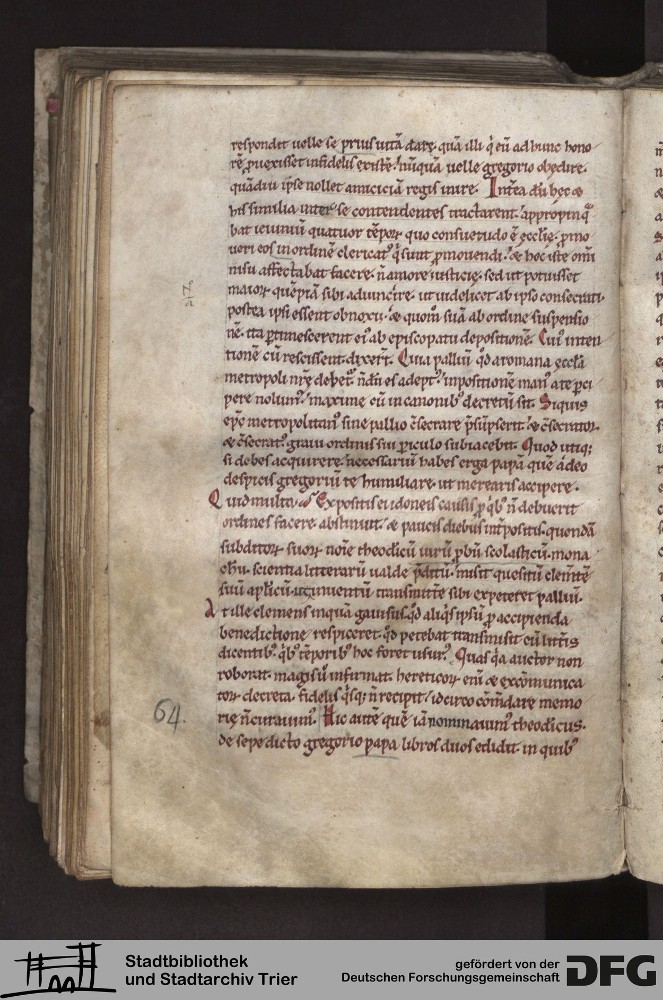 respondit uelle se prius uitā dare. quā illi q̇ eū ad hunc hono
rē puexisset infidelis existe. nūquā uelle gregorio obędire.
quādiu ipse nollet amiciciā regis inire. Intea dū hęc &
his similia inter se contendentes tractarent. appropinq̄
bat ieiuniū quatuor tēpoꝝ quo consuetudo ē ęcclię. pmo
ueri eos in ordinē clericat᷒ q̇ sunt pmouendi. & hoc iste omī
nisu affectabat facere. n̄ amore iusticię. sed ut potuisset
maioꝝ quēpiā sibi aduincire. ut uidelicet ab ipso consecrati.
postea ipsi essent obnoxii. & quoꝝ suā ab ordine suspensio
nē. ita ptimescerent ei᷒ ab episcopatu depositionē. Cui᷒ inten
tionē cū rescissent. dixer̄t. Quia palliū qd a romana ęccla
metropoli nrę debet᷑. n̄dū es adept᷒. inpositionē man᷒ a te pci
pere nolum᷒. maxime cū in canonib᷒ decretū sit. Siquis
epc metropolitan᷒ sine pallio ɔsecrare psūpserit. & ɔsecratoꝝ
& ɔsecrat᷒. graui ordinis sui piculo subiacebit. Quod utiq;
si debes acquirere. necessariū habes erga papā quē adeo
despicis gregoriū te humiliare. ut merearis accipere.
Quid multis? Expositis ei idoneis causis p qb᷒ n̄ debuerit
ordines facere. abstinuit. & paucis dieb᷒ int̄positis. quendā
subditoꝝ suoꝝ. noīe theodicū uirū pbū scolasticū. mona
chū. scientia litterarū ualde pditū. misit quesitū clemētē
suū aplicū. ut inuentū transmittē sibi expeteret palliū.
At ille clemens inquā gauisus. qd aliq̇s ipsū p accipienda
benedictione respiceret. qd petebat transmisit cū litt̄is
dicentib᷒. qb᷒ tēporib᷒ hoc foret usur᷒. Quas qa auctor non
roborat. magis ū infirmat. hereticoꝝ enī & excōmunica
toꝝ decreta. fidelis qsq; n̄ recipit. idcirco cōmdare memo
rię n̄ curauim᷒. Hic autē quē iā nominauim᷒ theodicus.
de sepe dicto gregorio papa libros duos edidit. in quib᷒
64.
Stadtbibliothek
und Stadtarchiv Trier
gefördert von der
Deutschen Forschungsgemeinschaft
DFG